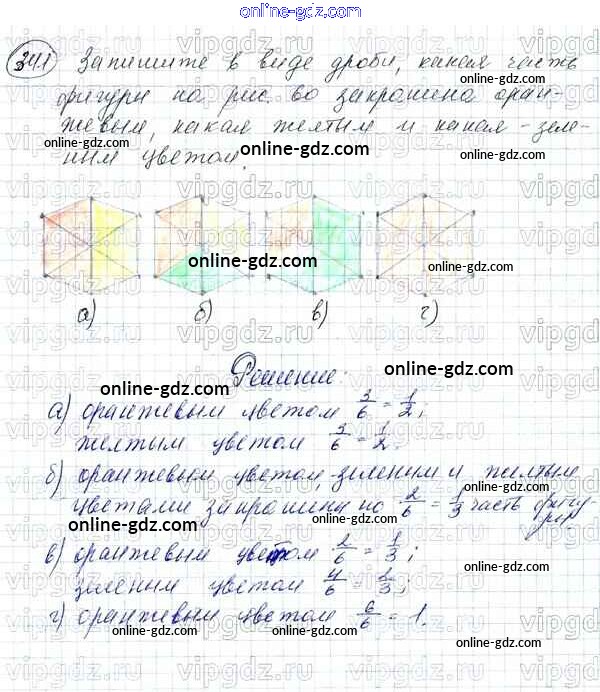 online-gdz.com
341 Запишите в виде дроби, какая часть
фигуры на рис во закрашена оран-
жевым, какая желтым и какая - зеле-
ным цветом.
а) б) в) г)
Решение:
а) оранжевым цветом 3/6 = 1/2;
желтым цветом 3/6 = 1/2.
б) оранжевым цветом, зеленым и желтым
цветами закрашены по 2/6 = 1/3 часть фигу-
ры
в) оранжевым цветом 2/6 = 1/3;
зеленым цветом 4/6 = 2/3;
г) оранжевым цветом 6/6 = 1.